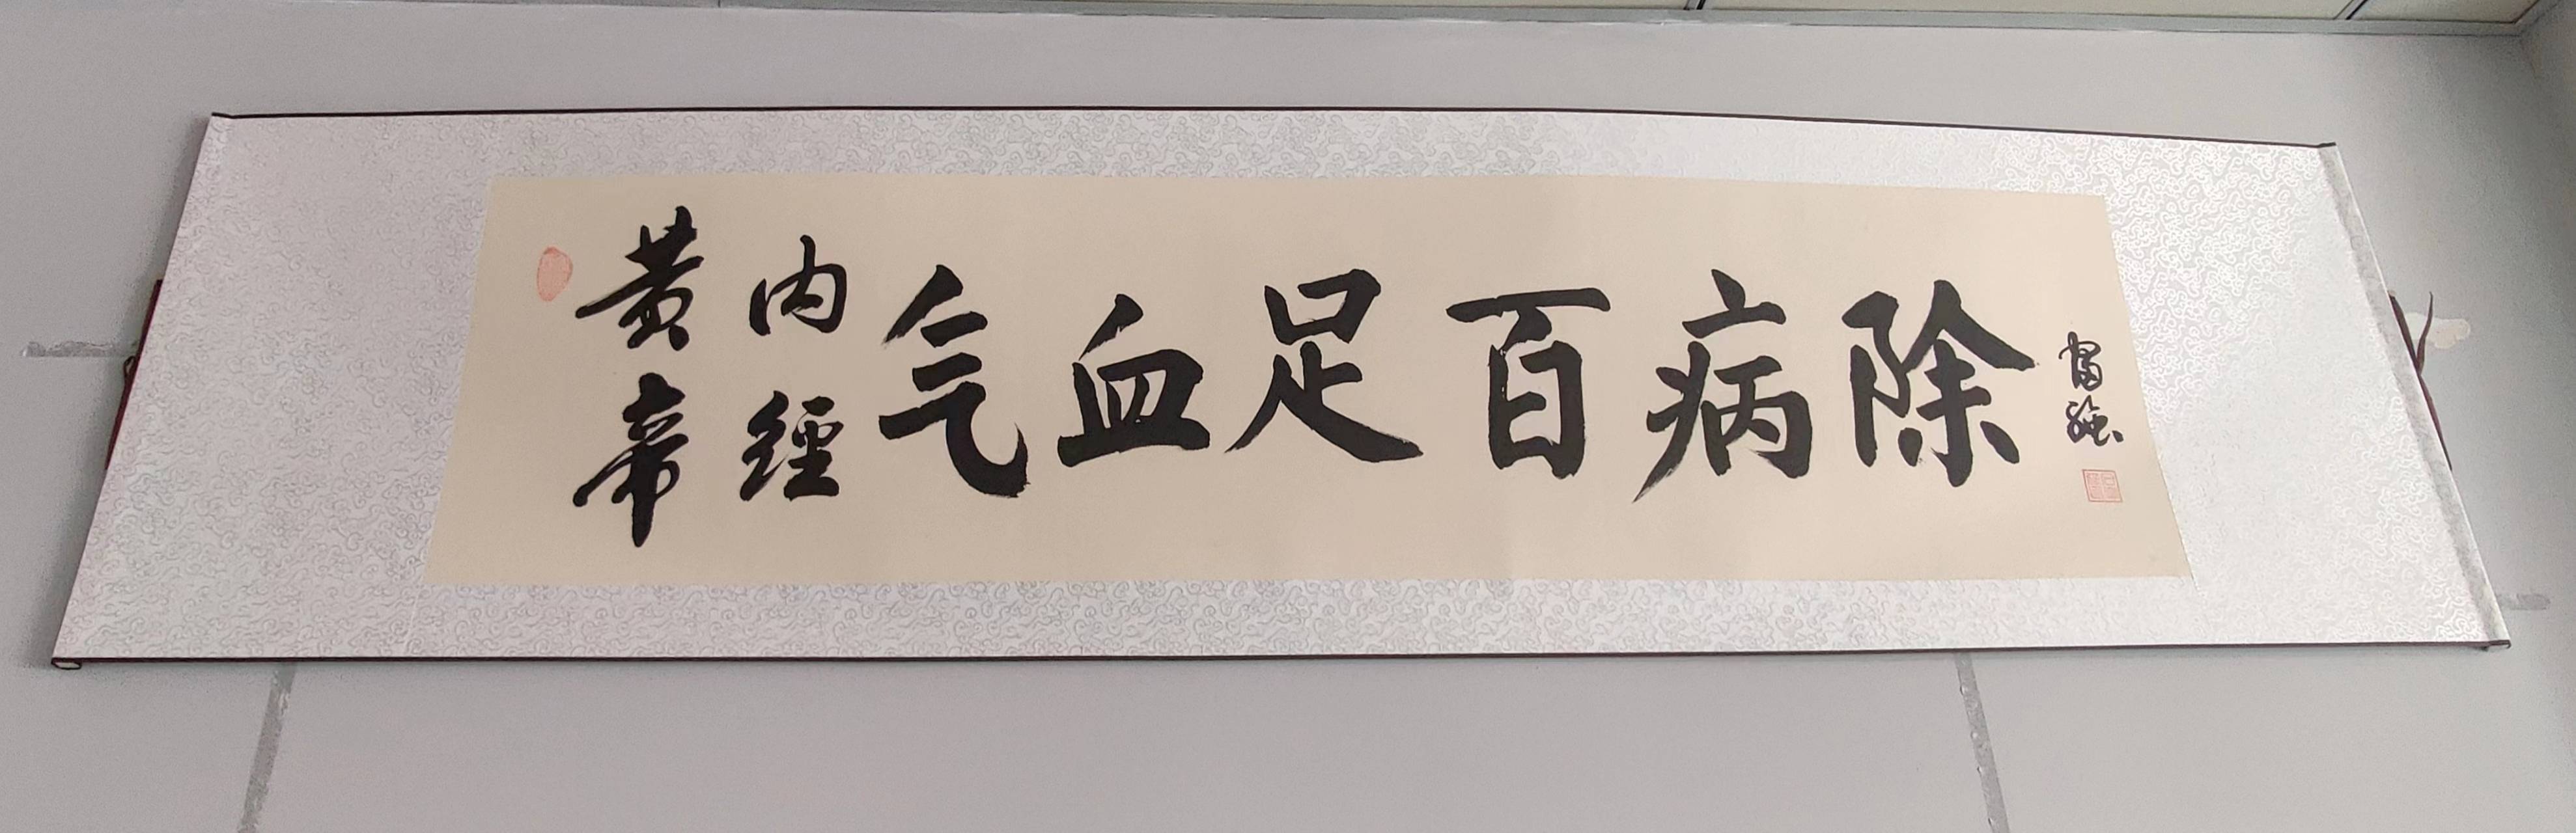 黄帝
内經
气血足百病除